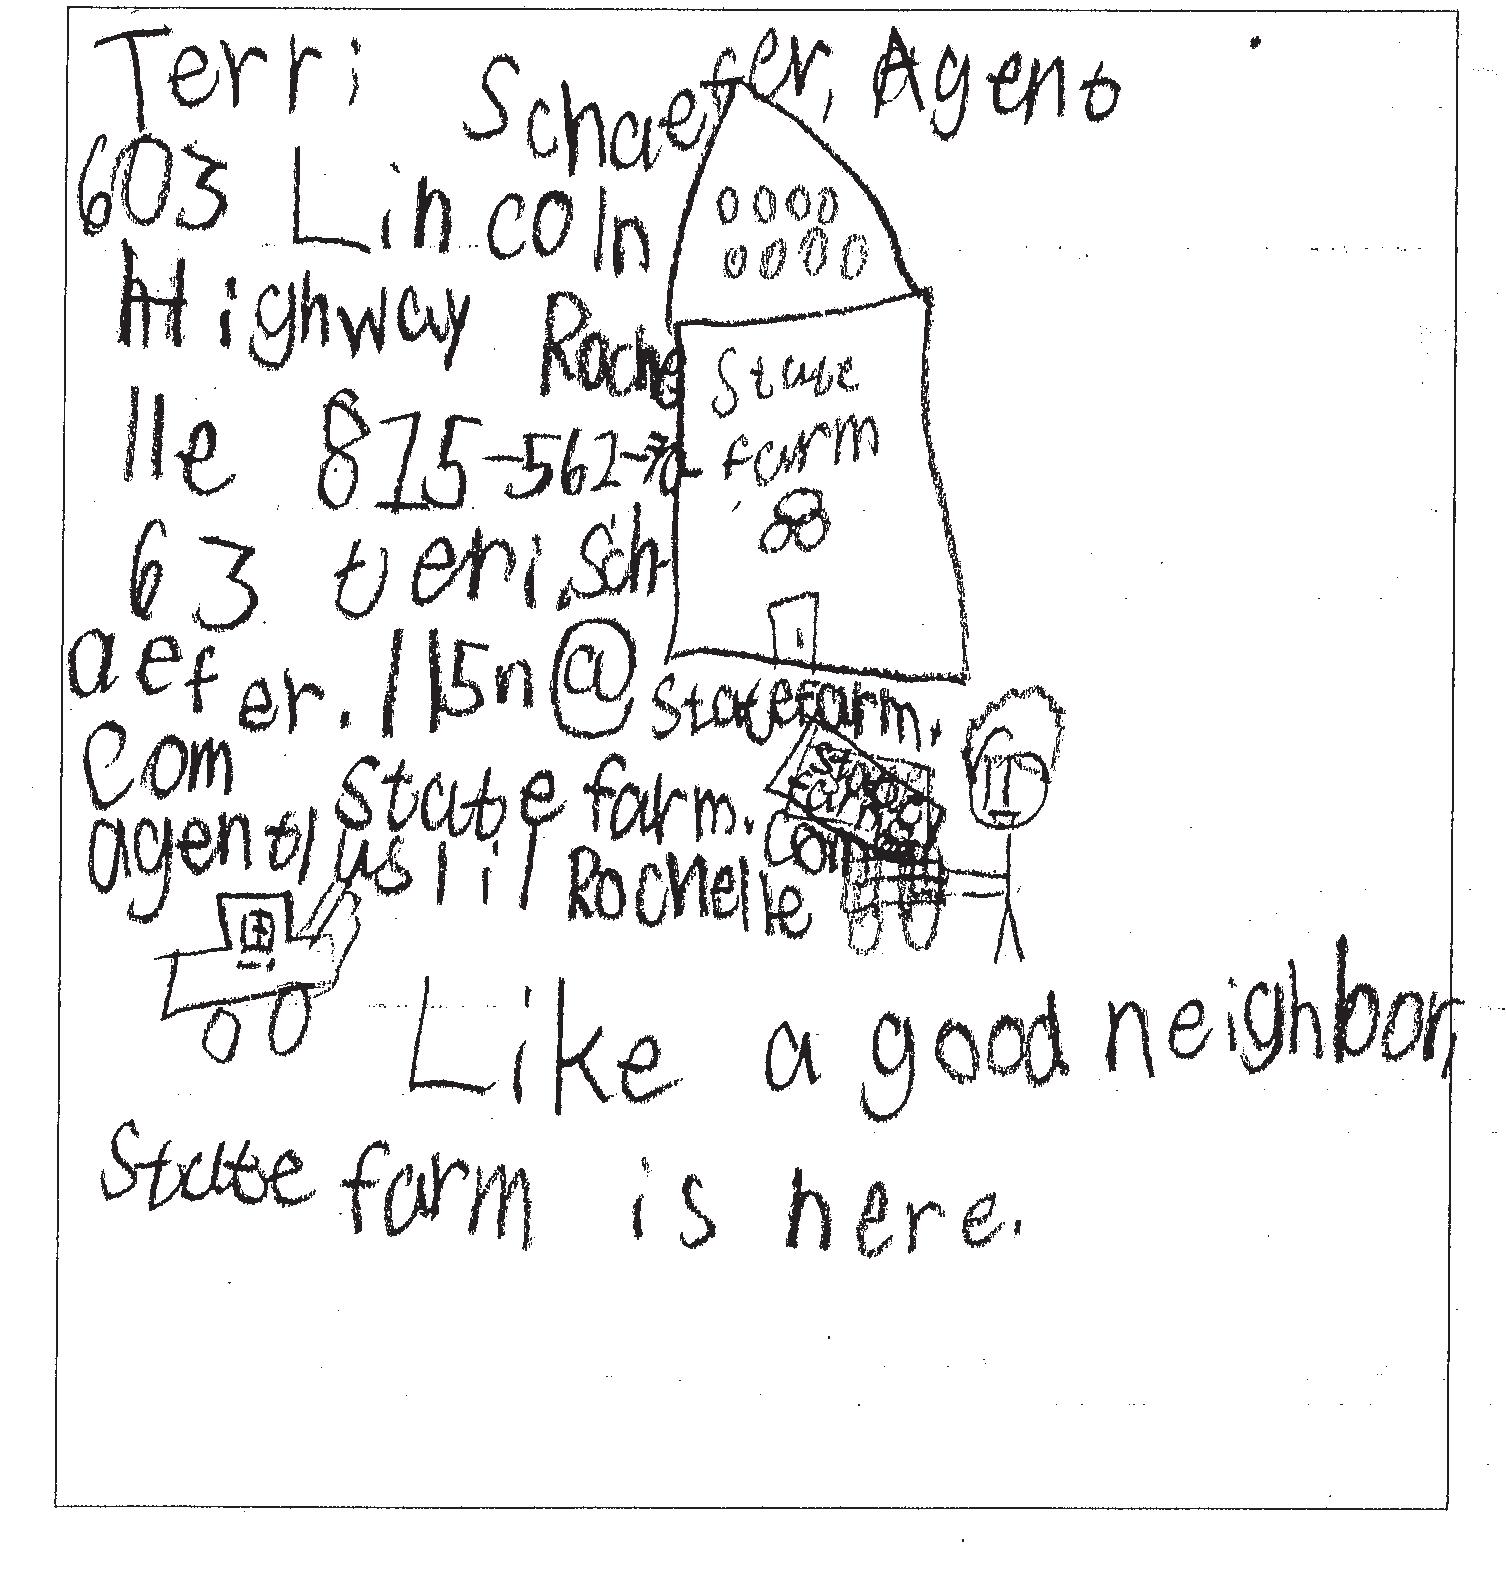 Terri Schaefer, Agent
603 Lincoln
Highway Roche
lle 815-562-70
63 terri.sch
aefer.115n@statefarm.
com statefarm.com
agent/us/il/Rochelle
State
farm
State
farm
Like a good neighbor,
State farm is here.